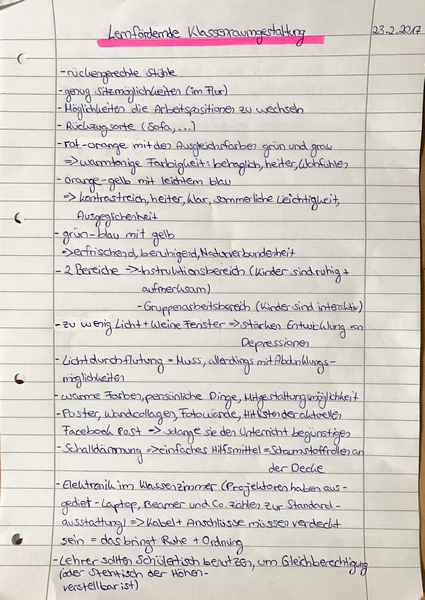 Lernfördernde Klassenraumgestaltung 23.2.2017
- rückengerechte Stühle
- genug Sitzmöglichkeiten (im Flur)
- Möglichkeiten die Arbeitspositionen zu wechseln
- Rückzugsorte (Sofa,...)
- rot-orange mit den Ausgleichsfarben grün und grau
=> warmtonige Farbigkeit: behaglich, heiter, Wohlfühlen
- orange-gelb mit leichtem blau
=> kontrastreich, heiter, klar, sommerliche Leichtigkeit,
Ausgeglichenheit
- grün-blau mit gelb
=> erfrischend, beruhigend, Naturverbundenheit
- 2 Bereiche => Instruktionsbereich (Kinder sind ruhig +
aufmerksam)
- Gruppenarbeitsbereich (Kinder sind interaktiv)
- zu wenig Licht + kleine Fenster => stärken Entwicklung von
Depressionen
- Lichtdurchflutung = Muss, allerdings mit Abdunklungs-
möglichkeiten
- warme Farben, persönliche Dinge, Mitgestaltungsmöglichkeit
- Poster, Wandcollagen, Fotowände, Hitlisten der aktuellen
Facebook Post => solange sie den Unterricht begünstigen
- Schalldämmung => einfaches Hilfsmittel = Schaumstoffrollen an
der Decke
- Elektronik im Klassenzimmer (Projektoren haben aus-
gedient - Laptop, Beamer und Co. zählen zur Standard-
ausstattung) => Kabel + Anschlüsse müssen verdeckt
sein = das bringt Ruhe + Ordnung
- Lehrer sollten Schülertisch benutzen, um Gleichberechtigung
(oder Stehtisch der Höhen-
verstellbar ist)